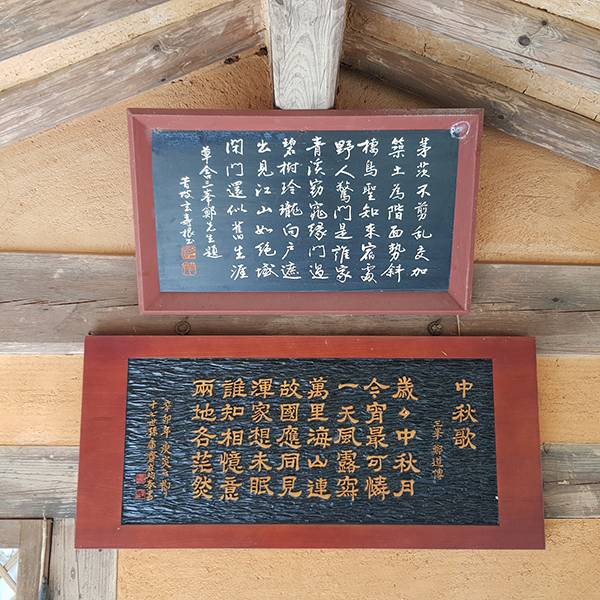 茅茨不剪乱交加
築土為階面勢斜
棲鳥聖知来宿處
野人驚問是誰家
青溪窈窕緣門過
碧樹玲瓏向戶遮
出見江山如絶域
閉門還似舊生涯
草舍三峯鄭先生題
中秋歌
三峯 鄭道傳
歲々中秋月
今宵最可憐
一天風露寂
萬里海山連
故國應同見
渾家想未眠
誰知相憶意
兩地各茫然
辛卯年